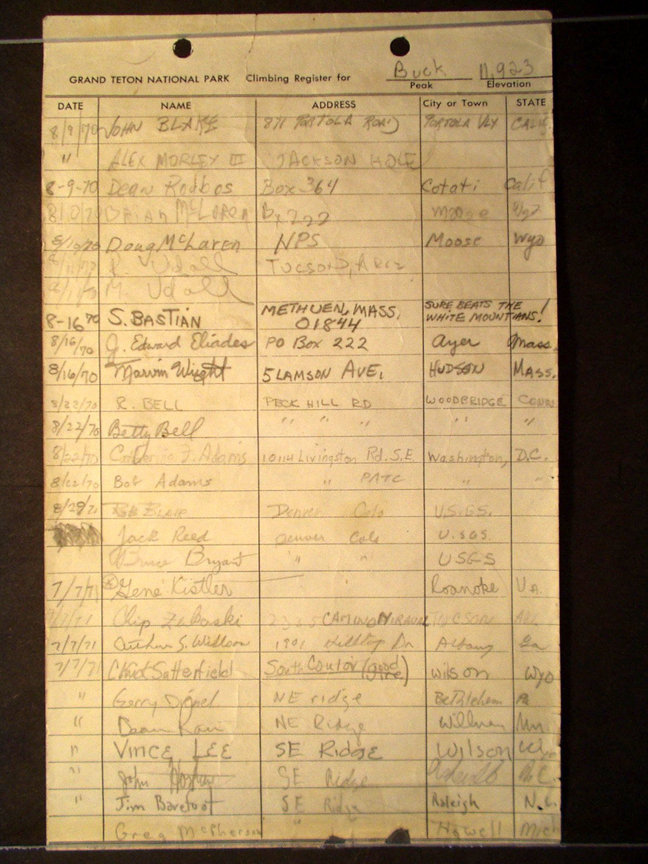 GRAND TETON NATIONAL PARK Climbing Register for Buck 11,923
Peak Elevation
DATE NAME ADDRESS City or Town STATE
8/9/70 JOHN BLAKE 871 PORTOLA ROAD PORTOLA VLY CALIF
" ALEX MORLEY III JACKSON HOLE
8-9-70 Dean Box 364 Cotati Calif
Brian McLaren Moose
Doug McLaren NPS Moose Wyo
Udall TUCSON, ARIZ
M. Udall
8-16 70 S. BASTIAN METHUEN, MASS. 01844 SURE BEATS THE WHITE MOUNTIANS!
8/16/70 J. Edward Eliades PO Box 222 Ayer Mass
8/16/70 Marvin Wright 5 LAMSON AVE, HUDSON MASS.
8/22/70 R. BELL PECK HILL RD WOODBRIDGE CONN
8/22/70 Betty Bell " " " " "
8/22/70 Catherine J. Adams 10114 Livingston Rd. S.E. Washington, D.C.
8/22/70 Bob Adams " PATC " "
Denver Colo U.S.G.S.
Jack Reed Denver Colo U.SGS
Bruce Bryant " " USGS
7/7/71 Gene Kistler Roanoke VA.
7/7/71 Chip CAMINO TUCSON
7/7/71 Arthur S. Hilltop Dr Albany Ga
7/7/71 Satterfield South Couloir (good time) Wilson Wyo
" Gerry NE ridge Bethlehem Pa
" NE Ridge
" VINCE LEE SE RIDGE Wilson Wyo
" John SE Ridge N.C.
" Jim Barefoot SE Ridge Raleigh N.C.
Greg McPherson " Howell Mich